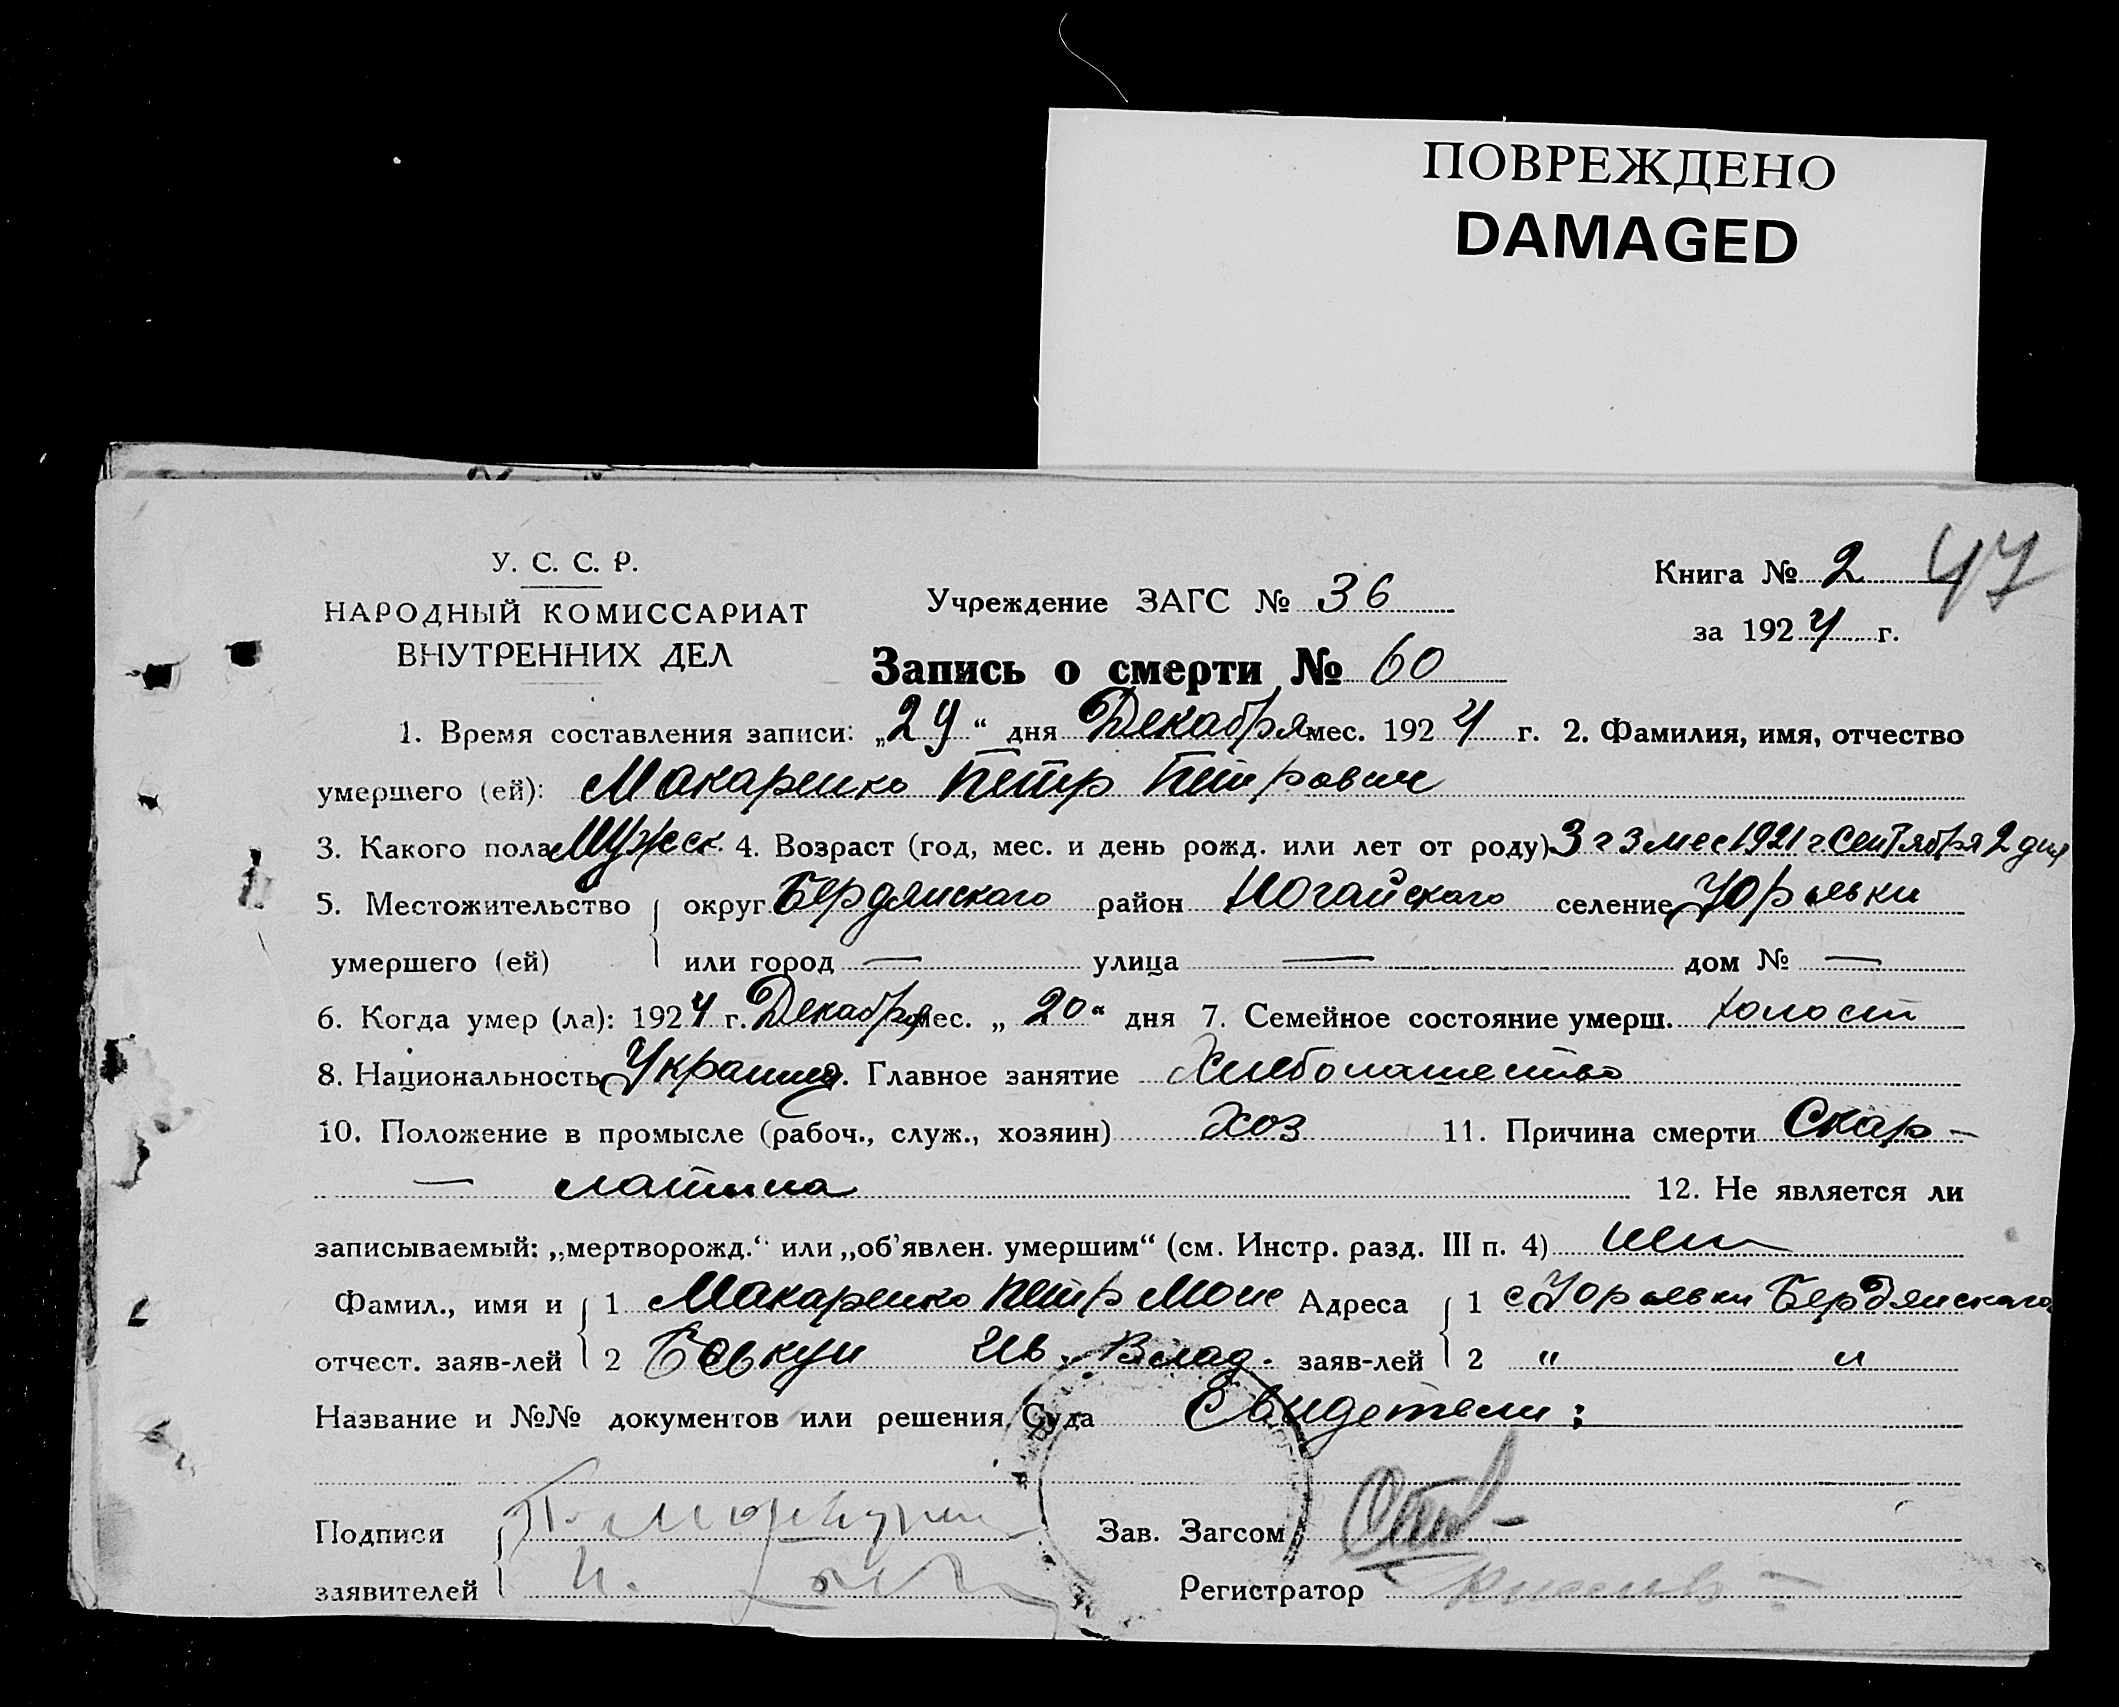 ПОВРЕЖДЕНО
DAMAGED
У. С. С. Р.
НАРОДНЫЙ КОМИССАРИАТ
ВНУТРЕННИХ ДЕЛ
Учреждение ЗАГС № 36
Книга № 2 47
за 1924 г.
Запись о смерти № 60
1. Время составления записи: „29“ дня Декабря мес. 1924 г. 2. Фамилия, имя, отчество
умершего (ей): Макаренко Петр Петрович
3. Какого пола Мужск. 4. Возраст (год, мес. и день рожд. или лет от роду) 3 г 3 мес 1921 г. Сентября 2 дня
5. Местожительство округ Бердянского район Ногайского селение Юрьевки
умершего (ей) или город — улица — дом № —
6. Когда умер (ла): 1924 г. Декабря мес. „20“ дня 7. Семейное состояние умерш. холост
8. Национальность Украин 9. Главное занятие Хлебопашество
10. Положение в промысле (рабоч., служ., хозяин) Хоз 11. Причина смерти Скар-
— латина 12. Не является ли
записываемый: „мертворожд.“ или „об’явлен. умершим“ (см. Инстр. разд. III п. 4) нет
Фамил., имя и 1 Макаренко Петр Моис Адреса 1 с Юрьевки Бердянского
отчест. заяв-лей 2 Ив. Влад. заяв-лей 2 " "
Название и №№ документов или решения Суда Свидетели:
Подписи Зав. Загсом
заявителей Регистратор